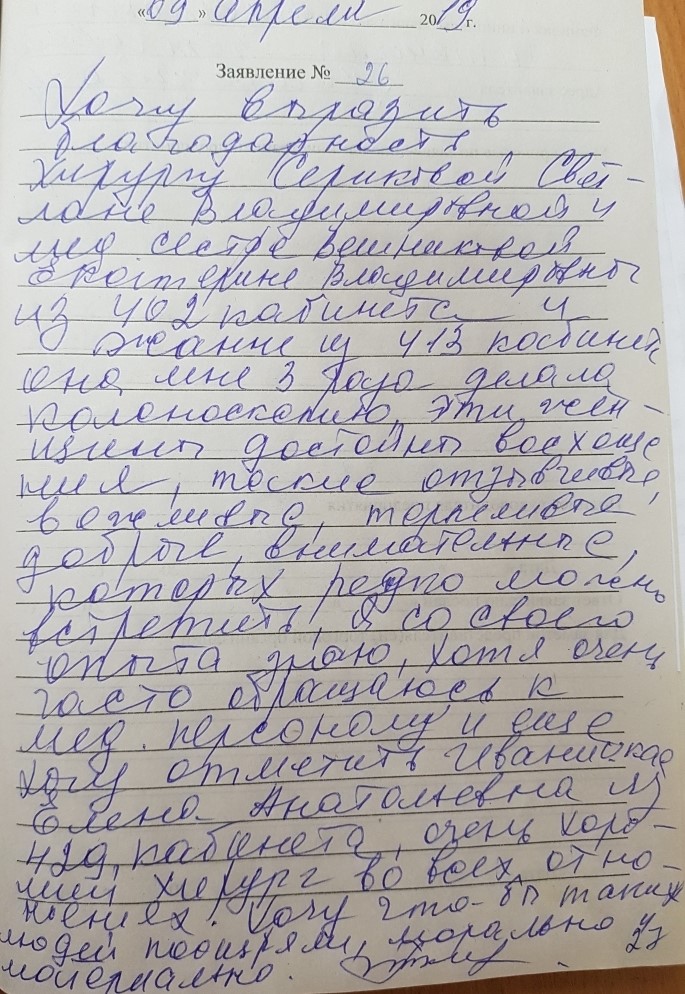 «09» Апрели 2019г.
Заявление № 26
Хочу выразить
благодарность
хирургу Сериковой Свет-
лане Владимировной и
мед сестре Вешняковой
Екатерине Владимировны
из 402 кабинета и
Жанне из 413 кабинета
она мне 3 раза делала
колоноскопию, эти жен-
щины достойны восхоще
ния, такие отзывчивые,
вежливые, терпеливые
добрые, внимательные,
которых редко можно
встретить, я со своего
опыта знаю, хотя очень
часто обращаюсь к
мед. персоналу и еще
хочу отметить
Елена Анатольевна из
429 кабинета, очень хоро-
ший хирург во всех отно-
шениях. Хочу что-бы таких
людей поощряли, морально и
материально.